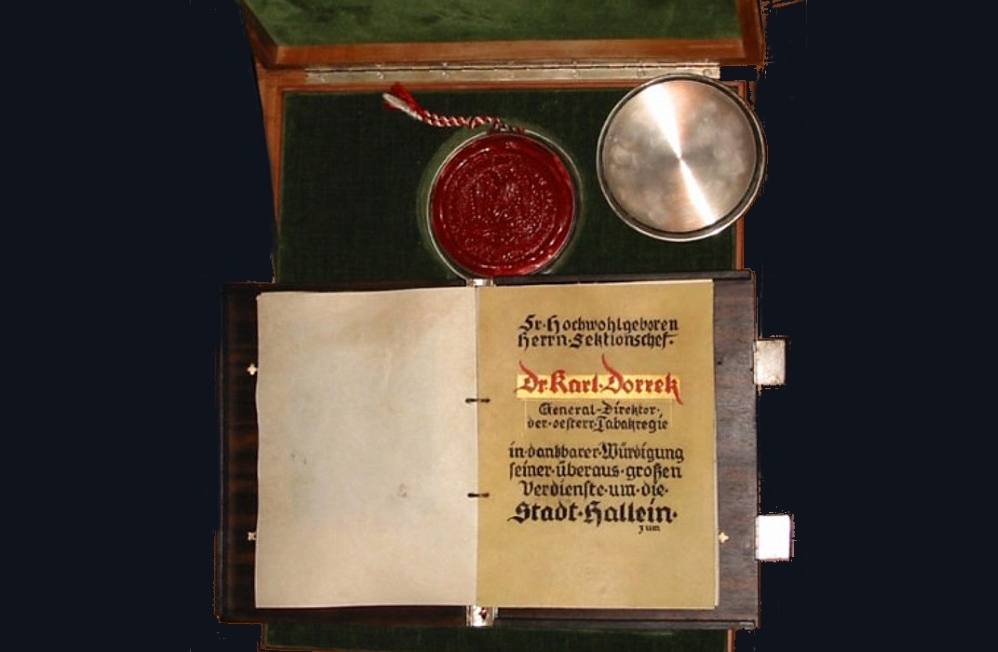 Sr·Hochwohlgeboren
Herrn·Sektionschef·
Dr·Karl·Dorrek
General-Direktor·
der·oesterr·Tabakregie
in·dankbarer·Würdigung
seiner·überaus·großen
Verdienste·um·die·
Stadt·Hallein·
zum